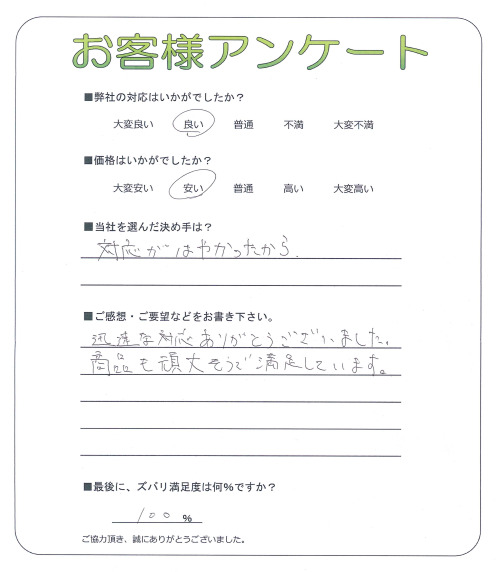 お客様アンケート
■弊社の対応はいかがでしたか？
大変良い 良い 普通 不満 大変不満
■価格はいかがでしたか？
大変安い 安い 普通 高い 大変高い
■当社を選んだ決め手は？
対応がはやかったから.
■ご感想・ご要望などをお書き下さい。
迅速な対応ありがとうございました。
商品も頑丈そうで満足しています。
■最後に、ズバリ満足度は何%ですか？
100 %
ご協力頂き、誠にありがとうございました。